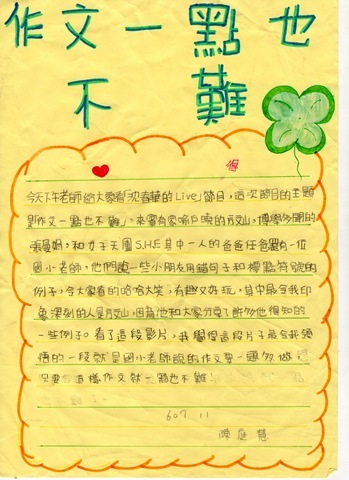 作文一點也
不難
今天下午老師給大家看「沈春華的Live」節目,這次節目的主題
是作文一點也不難」,來賓有家喻戶曉的
張曼娟,和女子天團S.H.E其中一人的爸爸任爸還有一位
國小老師,他們說一些小朋友用錯句子和標點符號的
例子,令大家看的哈哈大笑,有趣又好玩,其中最令我印
象深刻的人是,因為他和大家分享了許多他得知的
一些例子。看了這段影片,我覺得這段片子最令我領
悟的一段就是國小老師說的作文要一題多做,
只要這樣作文就一點也不難!
607 11
陳庭慧